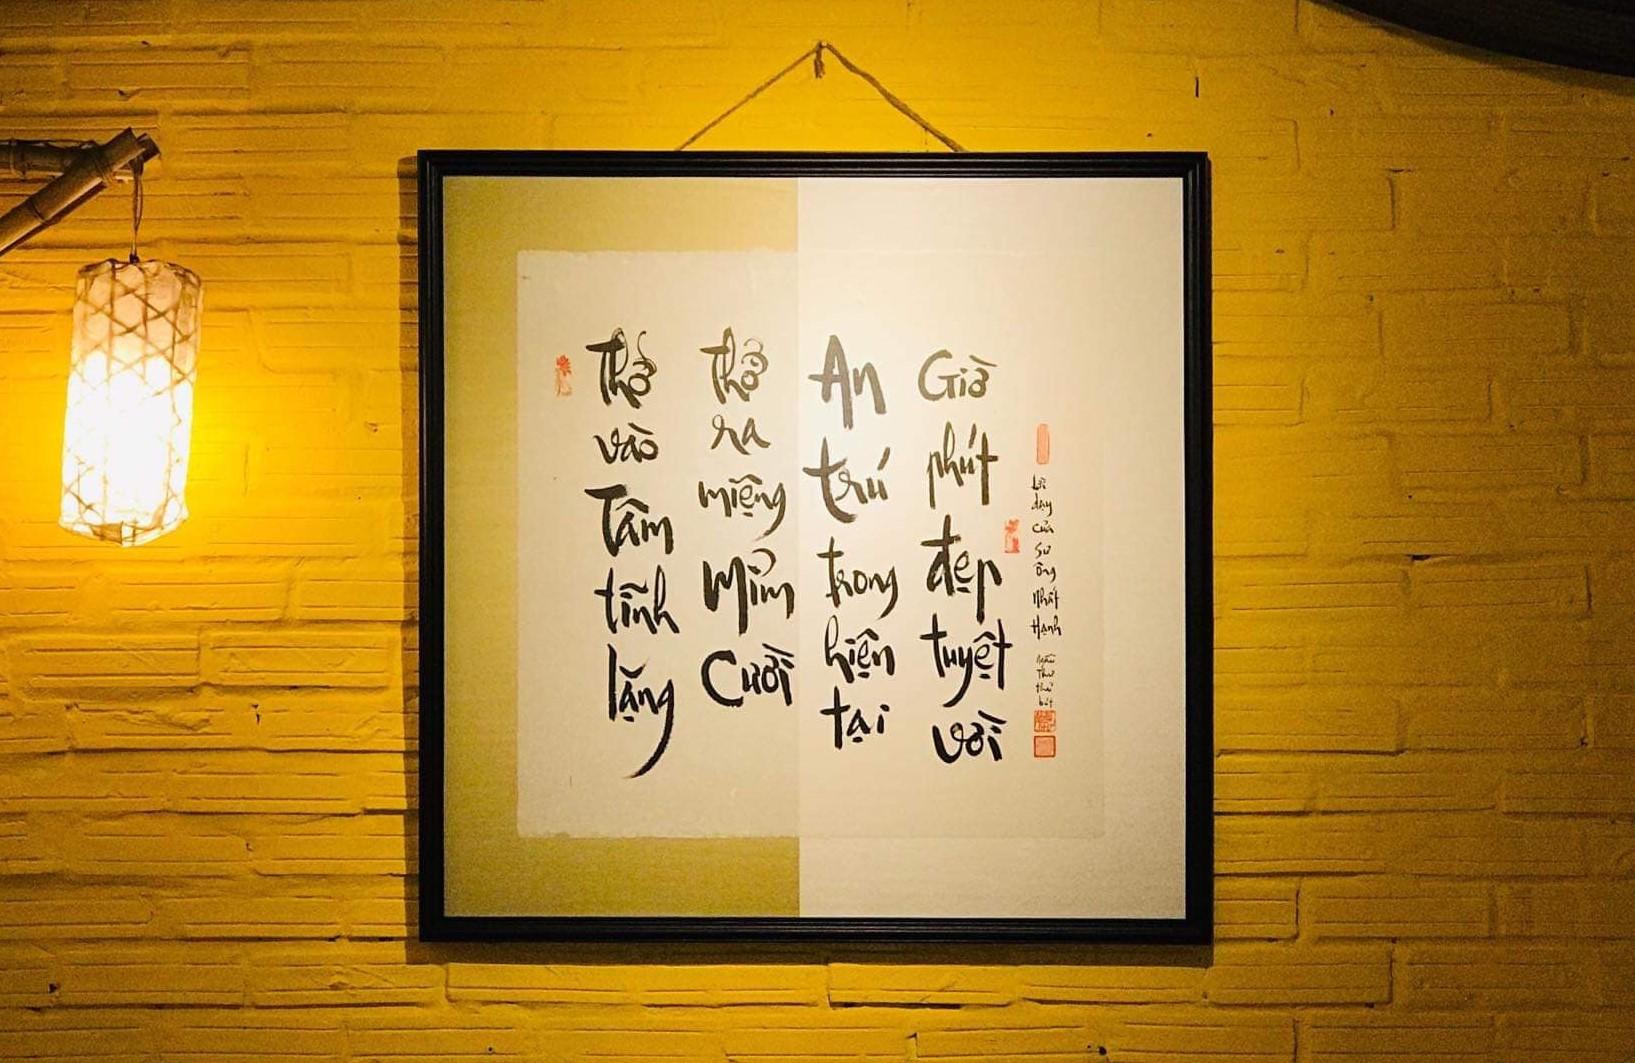 Thở vào Tâm tĩnh lặng
Thở ra miệng Mỉm Cười
An trú trong hiện tại
Giờ phút đẹp tuyệt vời
Lời dạy của Sư Ông Nhất Hạnh
thư bút